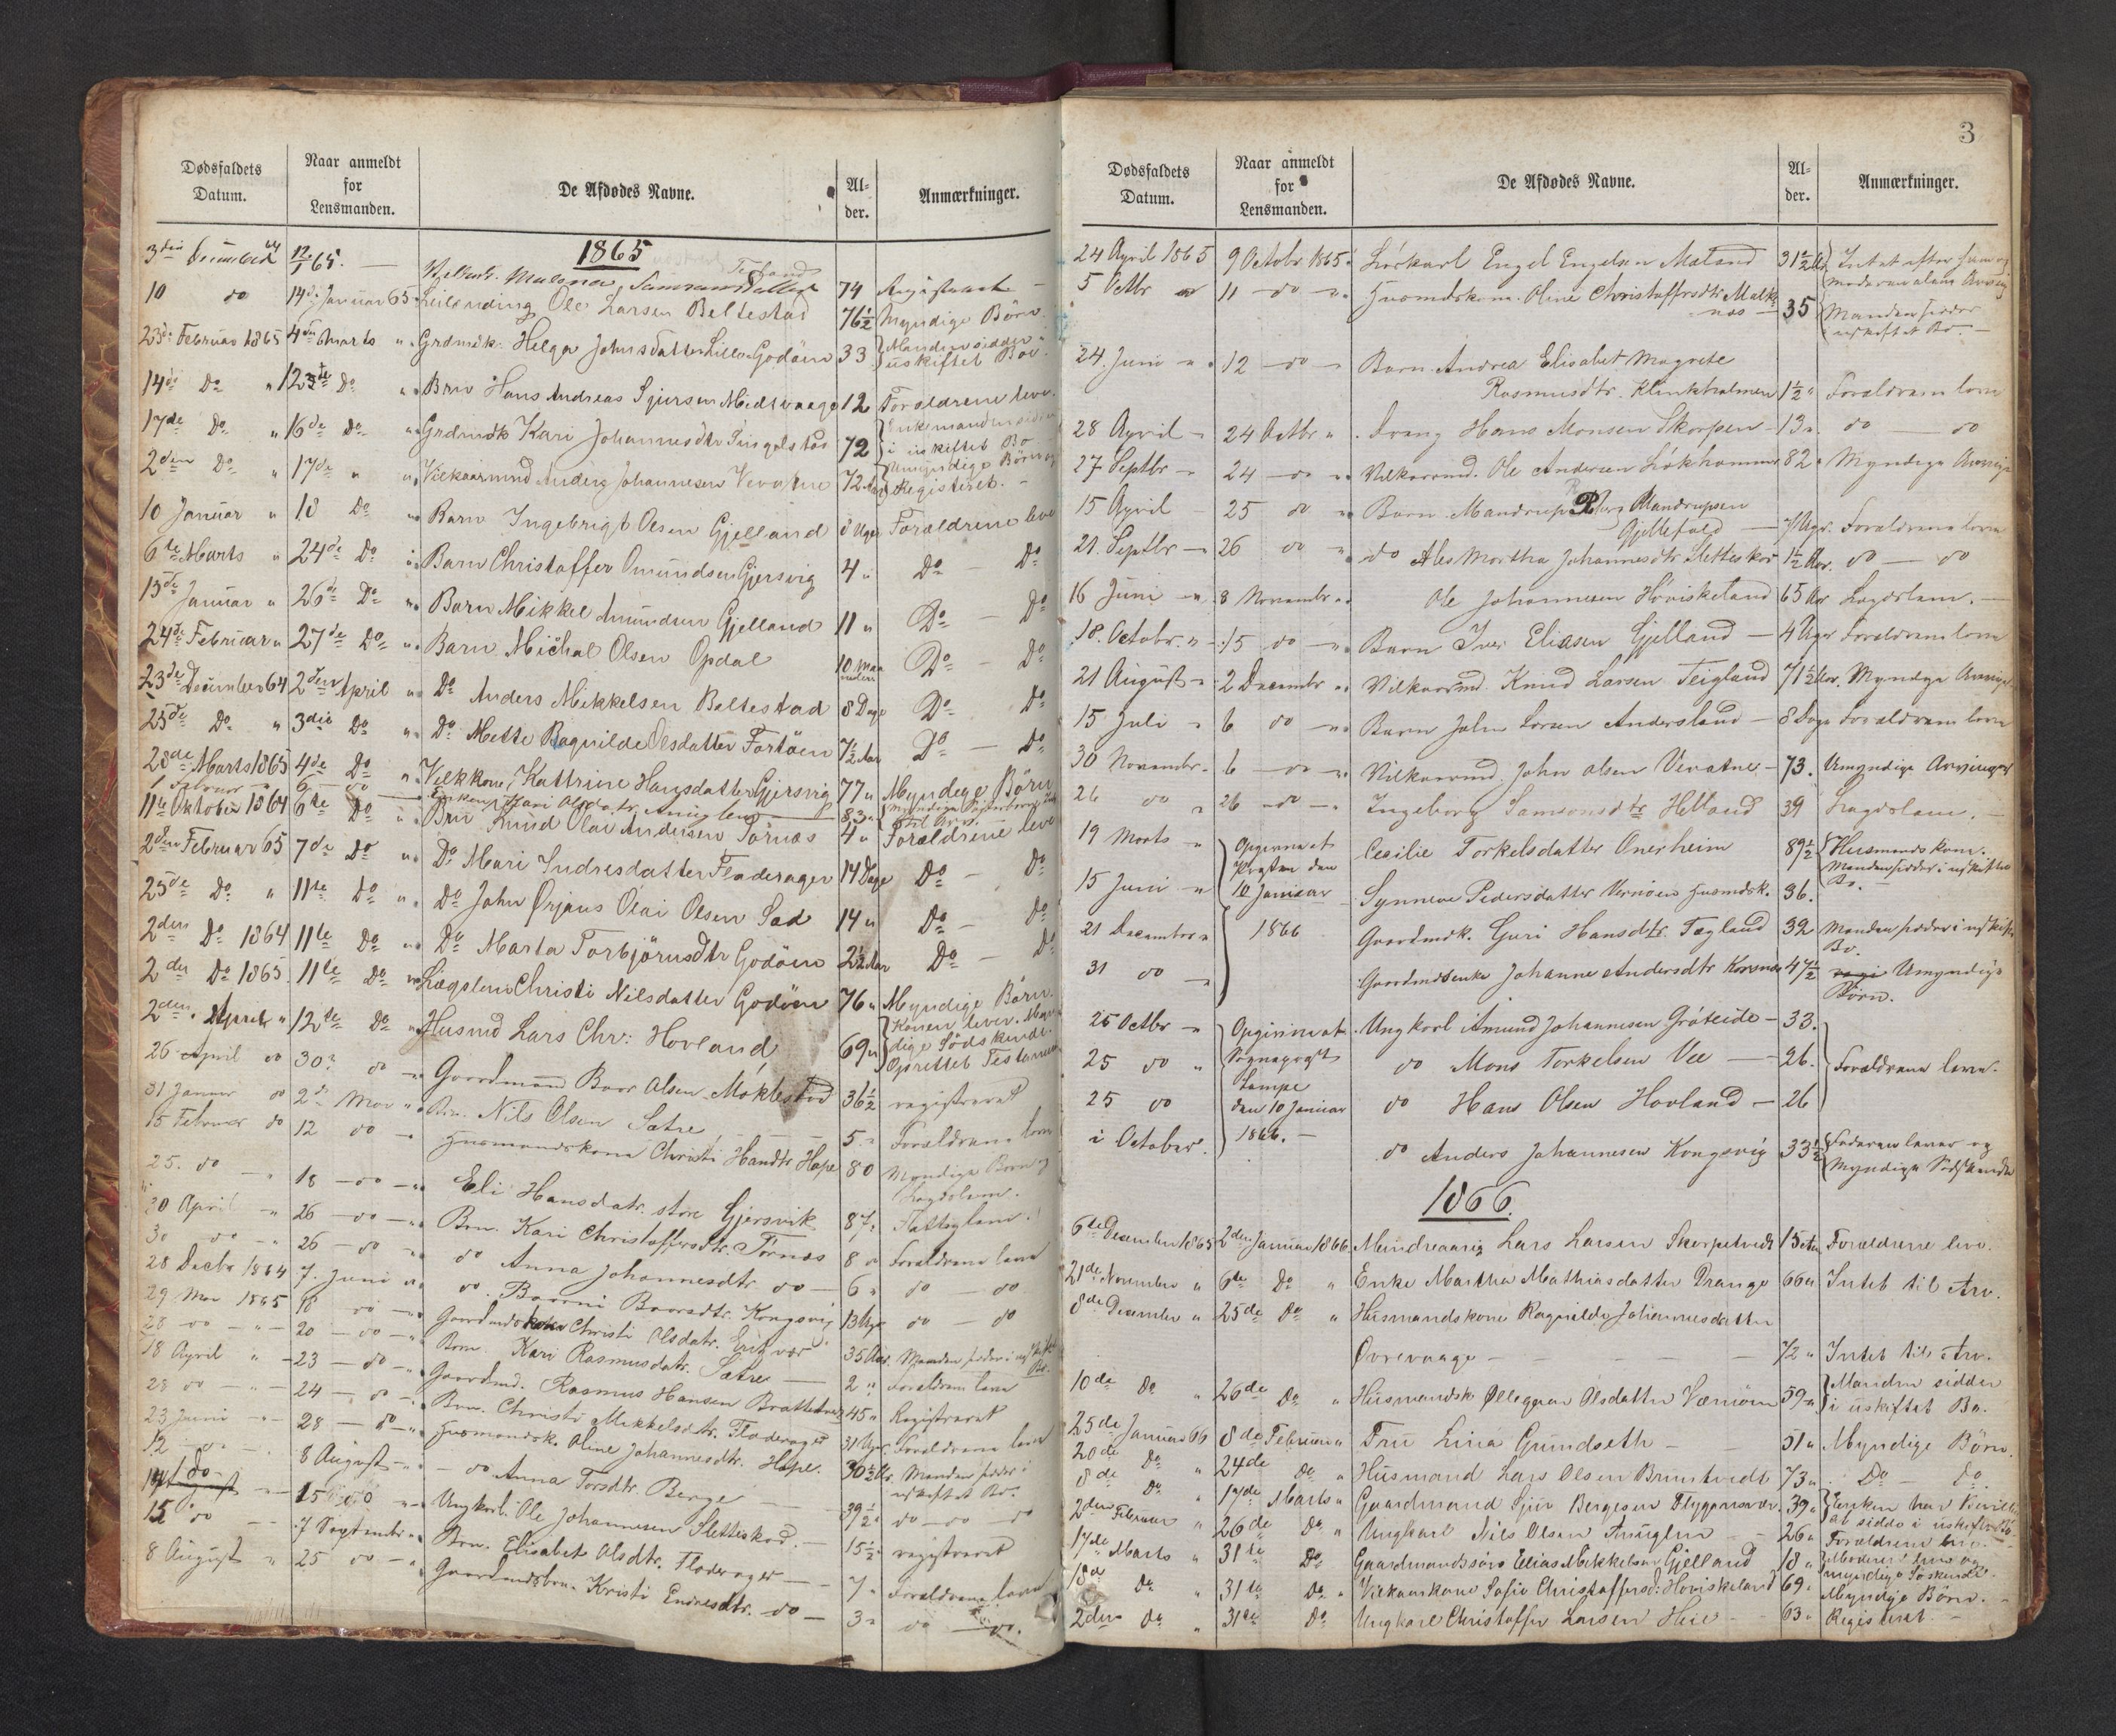 Dødsfaldets Datum. Naar anmeldt for Lensmanden. De Afdødes Navne. Al-der. Anmærkninger.
1865
3die December 64 12/1 65. Malena Samsonsdatter Teiland 74 Registreret
10 do 14de Januar 65 Leilending Ole Larsen Beltestad 76½ Myndige Børn
23de Februar 1865 4de Marts " Grdmdk. Helga Johnsdatter Lille Godøen 33 Manden sidder i uskiftet Bo
14de Do " 123te Do " Brn Hans Andreas Sjursen Midtvaage 12 Forældrene leve.
17de Do " 16de Do " Grdmdk Kari Johannesdtr 72 Enkemanden sidder i uskiftet Bo
2den Do " 17de " " Vilkaarmnd Anders Johannesen Vevatne 72 Aar Umyndige Børn og Registeret.
10 Januar " 18 Do " Barn Ingebrigt Olsen Gjelland 8 Uger Forældrene leve
6te Marts " 24de Do " Barn Christoffer Omundsen Gjersvig 4 " Do - Do
13de Januar " 26de Do " Barn Mikkel Amundsen Gjelland 11 " Do - Do
24de Februar " 27de Do " Barn Michal Olsen Opdal 10 Maaneder Do - Do
23de December 64 2den April " Do Anders Mikkelsen Beltestad 8 Dage Do - Do
25de Do " 3die Do " Do Mette Ragnilde Olsdatter Fortøen 7½ Aar Do - Do
28de Marts 1865 4de Do " Vilkkone Kattrine Hansdatter Gjersvig 77 " Myndege Børn
Februar 6 do Enken Kari Olsdatr. Anuglen 83 "
11te Oktober 1864 6te Do " Brn Knud Olai Andersen Tørnæs 4 " Forældrene leve
2den Februar 65 7de Do " Do Mari Indresdatter Fladerager 14 Dage Do - Do
25de Do " 11te Do " Do John Ørjans Olai Olsen Sæd 14 " Do - Do
2den Do 1864 11te Do " Do Marta Torbjørnsdtr Godøen 2½ Aar Do - Do
2den Do 1865. 11te Do " Lægslem Christi Nilsdatter Godøen 76 " Myndige Børn.
2den April " 12te Do " Husmd Lars Chr: Hovland 69 " Konen lever. Myndige Sødskende. Oprettet Testament
26 April do 30 do Gaardmand Baar Olsen Møklestad 36½ registreret
31 Januar do 2de Mai " Brn. Nils Olsen Sætre 5 " Forældrene leve
15 Februar do 12 do Husmandskone Christi Handtr Hope 80 Myndige Børn og Lægdslem.
25. do 18 do Eli Hansdatr. store Gjersvik 87 " Fattiglem.
20 April " 26 do Brn. Kari Christoffersdtr. Tørnæs 8 " Forældrene leve
30 do 26 do do Anna Johannesdtr do 6 " do do
28 Decbr 1864 7. Juni " do. Baarsdtr. Kongsvig 13 Uger do do
29 Mai 1865 18 do Gaardmdskone Christi Olsdatr. 35 Aar. Manden sidder i uskiftet Bo.
28 do 20 do Brn. Kari Rasmusdatr. Sætre 2 " Forældrene leve
18 April " 23 do Gaardmd. Rasmus Hansen 45 " Registreret
28 do 24 do Brn. Christi Mikkelsdtr. Fladerager 31 Uger. Forældrene leve
23 Juni 28 do Husmandsk. Oline Johannesdtr. Hope. 30½ Ar. Manden sidder i uskiftet Bo.
12 do 8 August do Anna Torsdtr. Berge 39½ do do do
14 do 15 do Ungkarl. Ole Johannesen Slettiskod. 15½ registreret
15 do 7 September Brn. Elisabet Olsdtr. Fladerager 7 " Forældrene leve
8 August 25 do Gaardmdsbrn. Kristi Endresdtr. do 3 " do do.
3
Dødsfaldets Datum. Naar anmeldt for Lensmanden. De Afdødes Navne. Al-der. Anmærkninger.
24 April 1865 9 Octobr 1865 Løskarl Engel Engelsen Mæland 31½ Intet efter ham og moderen alene Arving
5 Octbr 11 do Husmdskone. Oline Christoffersdtr Malkenes 35 Manden sidder i uskiftet Bo.
24. Juni " 12 do Barn Andrea Elisabet Magrete
Rasmusdtr. Klinkholmen 1½ " Forældrene leve
28 April 24 Octbr " Dreng Hans Monsen Skorpen 13 " do do
27 Septbr 24 do Vilkaarmd. Ole Andersen Løkhammer 82 " Myndige Arvinger
15 April 25 do Barn Mandrup Mandrupsen
Gjellefald 7 Uger. Forældrene leve
21. Septbr 26 do do Ales Martha Johannesdtr Slettiskod 1½ Aar. do do
16 Juni 8 Novembr Ole Johannesen Høviskeland 65 Aar Lægdslem.
18. Octobr. 15 do Barn Iver Eliasen Gjelland 4 Uger Forældrene leve
21 August 2 Decembr Vilkaarmd. Knud Larsen Teigland 71½ Aar. Myndige Arvinger
15 Juli 6 do Barn John Larsen Andersland 8 Dage Forældrene leve
30 Novembr. 6 do Vilkaarmd. John Olsen Vevatne 73. Umyndige Arvinger
26 do 26 do Ingeborg Samsonsdtr Helland 39 Lægdslem.
19 Marts Opgivne at Presten den 10 Januar 1866 Cecilie Torkelsdatter Onerheim 89½ Husmandskone. Manden sidder i uskiftet Bo.
15 Juni Synneve Pedersdatter Vernøen Husmdsk. 36.
21 December Gaardmdk. Guri Hansdtr. Tægland 32 Manden sidder i uskiftet Bo.
31 do Gaardmdsenke Johanne Andersdtr Korsnes 47½ Umyndige Børn.
25 Octbr Opgivne at Sognepræst Lampe den 10 Januar 1866. Ungkarl Amund Johannesen Gröteide 33. Forældrene leve.
25 do do Mons Torkelsen Vee 26.
25 do do Hans Olsen Hovland 26
i October. do Anders Johannesen Kongsvig 33½ Faderen lever og Myndige Sødskende
1866.
6te December 1865 2den Januar 1866 Mindreaarig Lars Larsen Skorpetvedt 15 Aar Forældrene leve.
21de November " 6te Do " Enke Martha Mathiasdatter Drange 66 " Intet til Arv.
8de December " 25de Do " Husmandskone Ragnilde Johannesdatter
Øvrevaage 72 " Intet til Arv.
10de Do " 26de Do " Husmandsk Ollegaar Olsdatter Værnøen 59 " Manden sidder i uskiftet Bo.
25de Januar 66 8de Februar " Fru Lina Gundseth 51 " Myndige Børn
20de Do " 24de Do " Husmand Lars Olsen Bruntvedt 73 " Do Do
8de Do " 17de Marts " Gaardmand Sjur Bergesen Flyggansvær. 39 " Enken har bevill. at sidde i uskiftet Bo.
2den Februar " 26de Do " Ungkarl Nils Olsen Anuglen 26 " Forældrene leve
17de Marts " 31te Do Gaardmandssøn Elias Mikkelsen Gjelland 18 " Moderen lever og myndige Søskende.
18de Do " 31te Do " Vilkaarkone Sofie Christoffersd: Høviskeland 69 " Myndige Børn.
2den Do " 31te Do Ungkarl Christoffer Larsen Heie 63 " Registreret